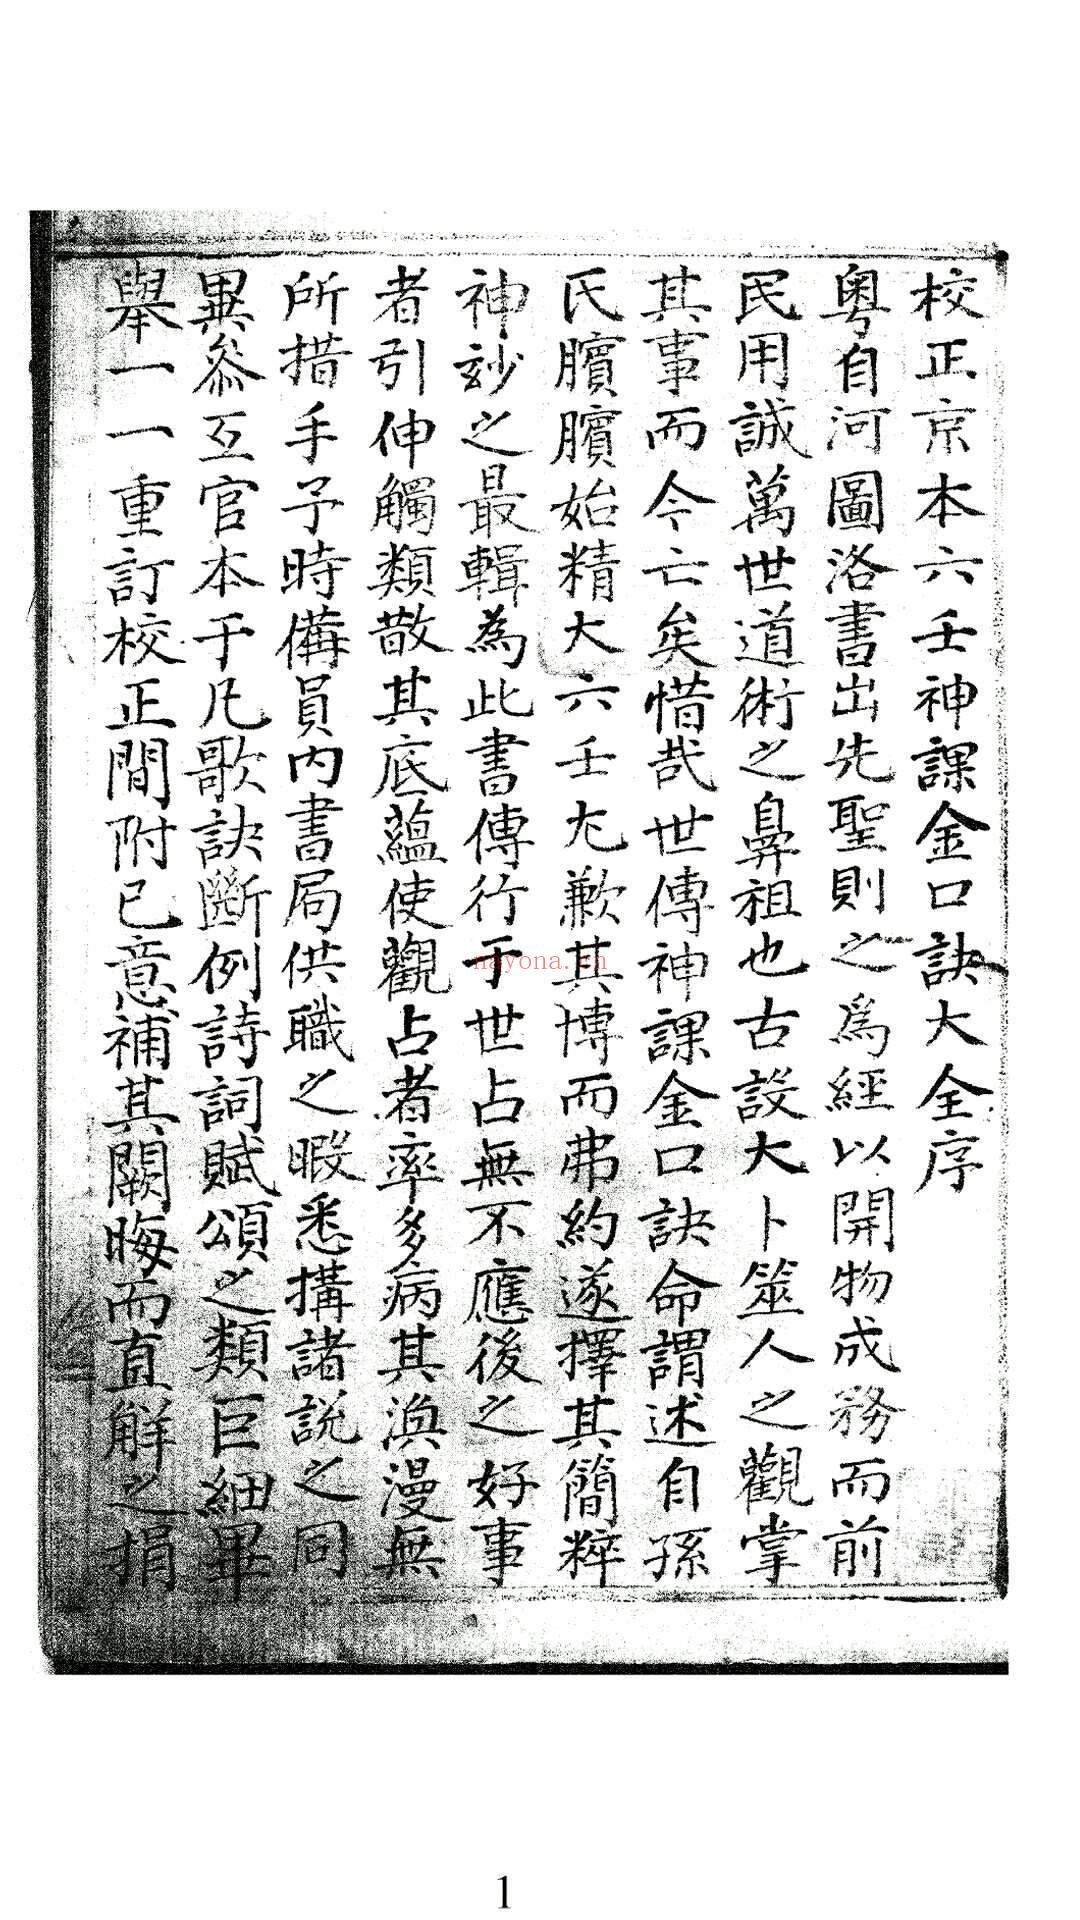 校正京本六壬神課金口訣大全序
粵自河圖洛書出先聖則之爲經以開物成務而前
民用誠萬世道術之鼻祖也古設大卜筮人之觀掌
其事而今亡矣惜哉世傳神課金口訣命謂述自孫
氏臏臏始精大六壬尤歉其博而弗約遂擇其簡粹
神玅之最輯為此書傳行于世占無不應後之好事
者引伸觸類散其底蘊使觀占者率多病其渙漫無
所措手予時備員內書局供職之暇悉搆諸説之同
異叅互官本于凡歌訣斷例詩詞賦頌之類巨細畢
舉一一重訂校正間附已意補其闕晦而直解之捐
nayona.cn
1